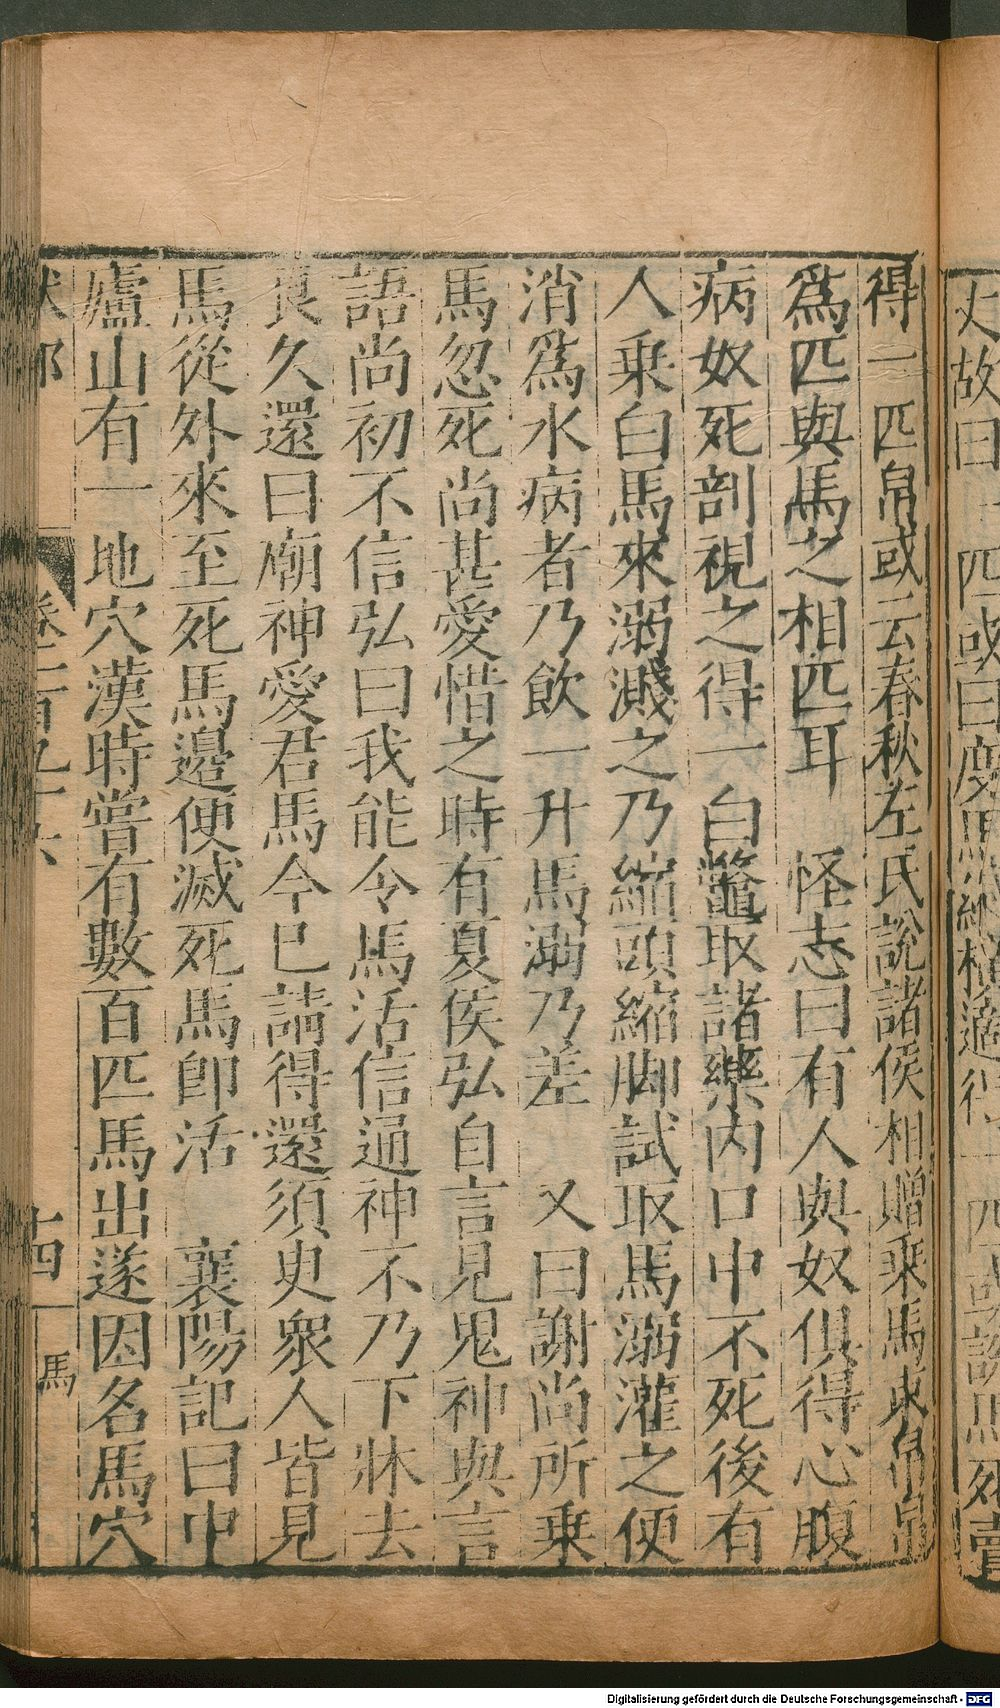 丈故曰一匹或曰度馬縱橫適得一匹或說馬死賣
得一匹帛或云春秋左氏說諸侯相贈乘馬束帛帛
爲匹與馬之相匹耳　怪志曰有人與奴俱得心腹
病奴死剖視之得一白鼈取諸藥內口中不死後有
人乘白馬來溺濺之乃縮頭縮脚試取馬溺灌之便
消爲水病者乃飲一升馬溺乃差　又曰謝尚所乘
馬忽死尚甚愛惜之時有夏侯弘自言見鬼神與言
語尚初不信弘曰我能令馬活信通神不乃下牀去
良久還曰廟神愛君馬今巳請得還須史衆人皆見
馬從外來至死馬邉便滅死馬卽活　襄陽記曰中
廬山有一地穴漢時嘗有數百匹馬出遂因名馬穴
獸部
卷二百九十六
十四
馬
Digitalisierung gefördert durch die Deutsche Forschungsgemeinschaft - DFG